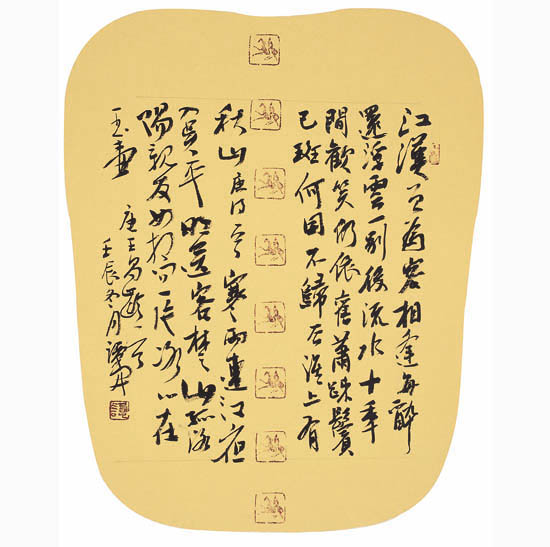 江漢曾為客相逢每醉
還浮雲一別後流水十年
間歡笑仍依舊蕭疎鬢
已班何因不歸去淮上有
秋山 寒雨連江夜
入吳平明送客楚山孤洛
陽親友如相問一片冰心在
玉壺 唐王昌齡一首
壬辰冬月